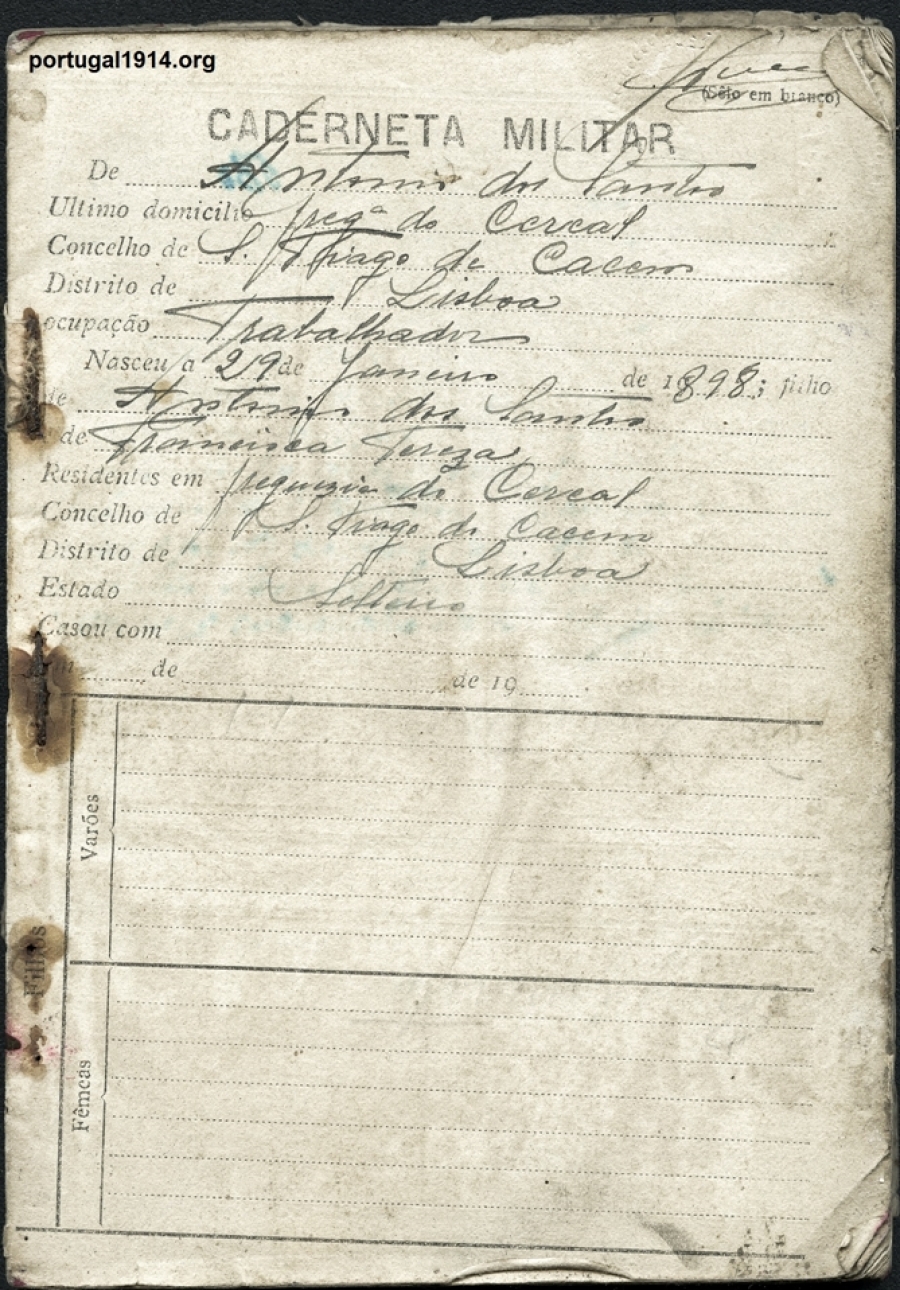 portugal1914.org
(Sêlo em branco)
CADERNETA MILITAR
De Antonio dos Santos
Ultimo domicilio freg.ª do Cercal
Concelho de S. Thiago de Cacem
Distrito de Lisboa
ocupação Trabalhador
Nasceu a 29 de Janeiro de 1898; filho
de Antonio dos Santos
de Francisca Tereza
Residentes em freguezia do Cercal
Concelho de S. Tiago de Cacem
Distrito de Lisboa
Estado Solteiro
Casou com
de de 19
Filhos
Varões
Fêmeas